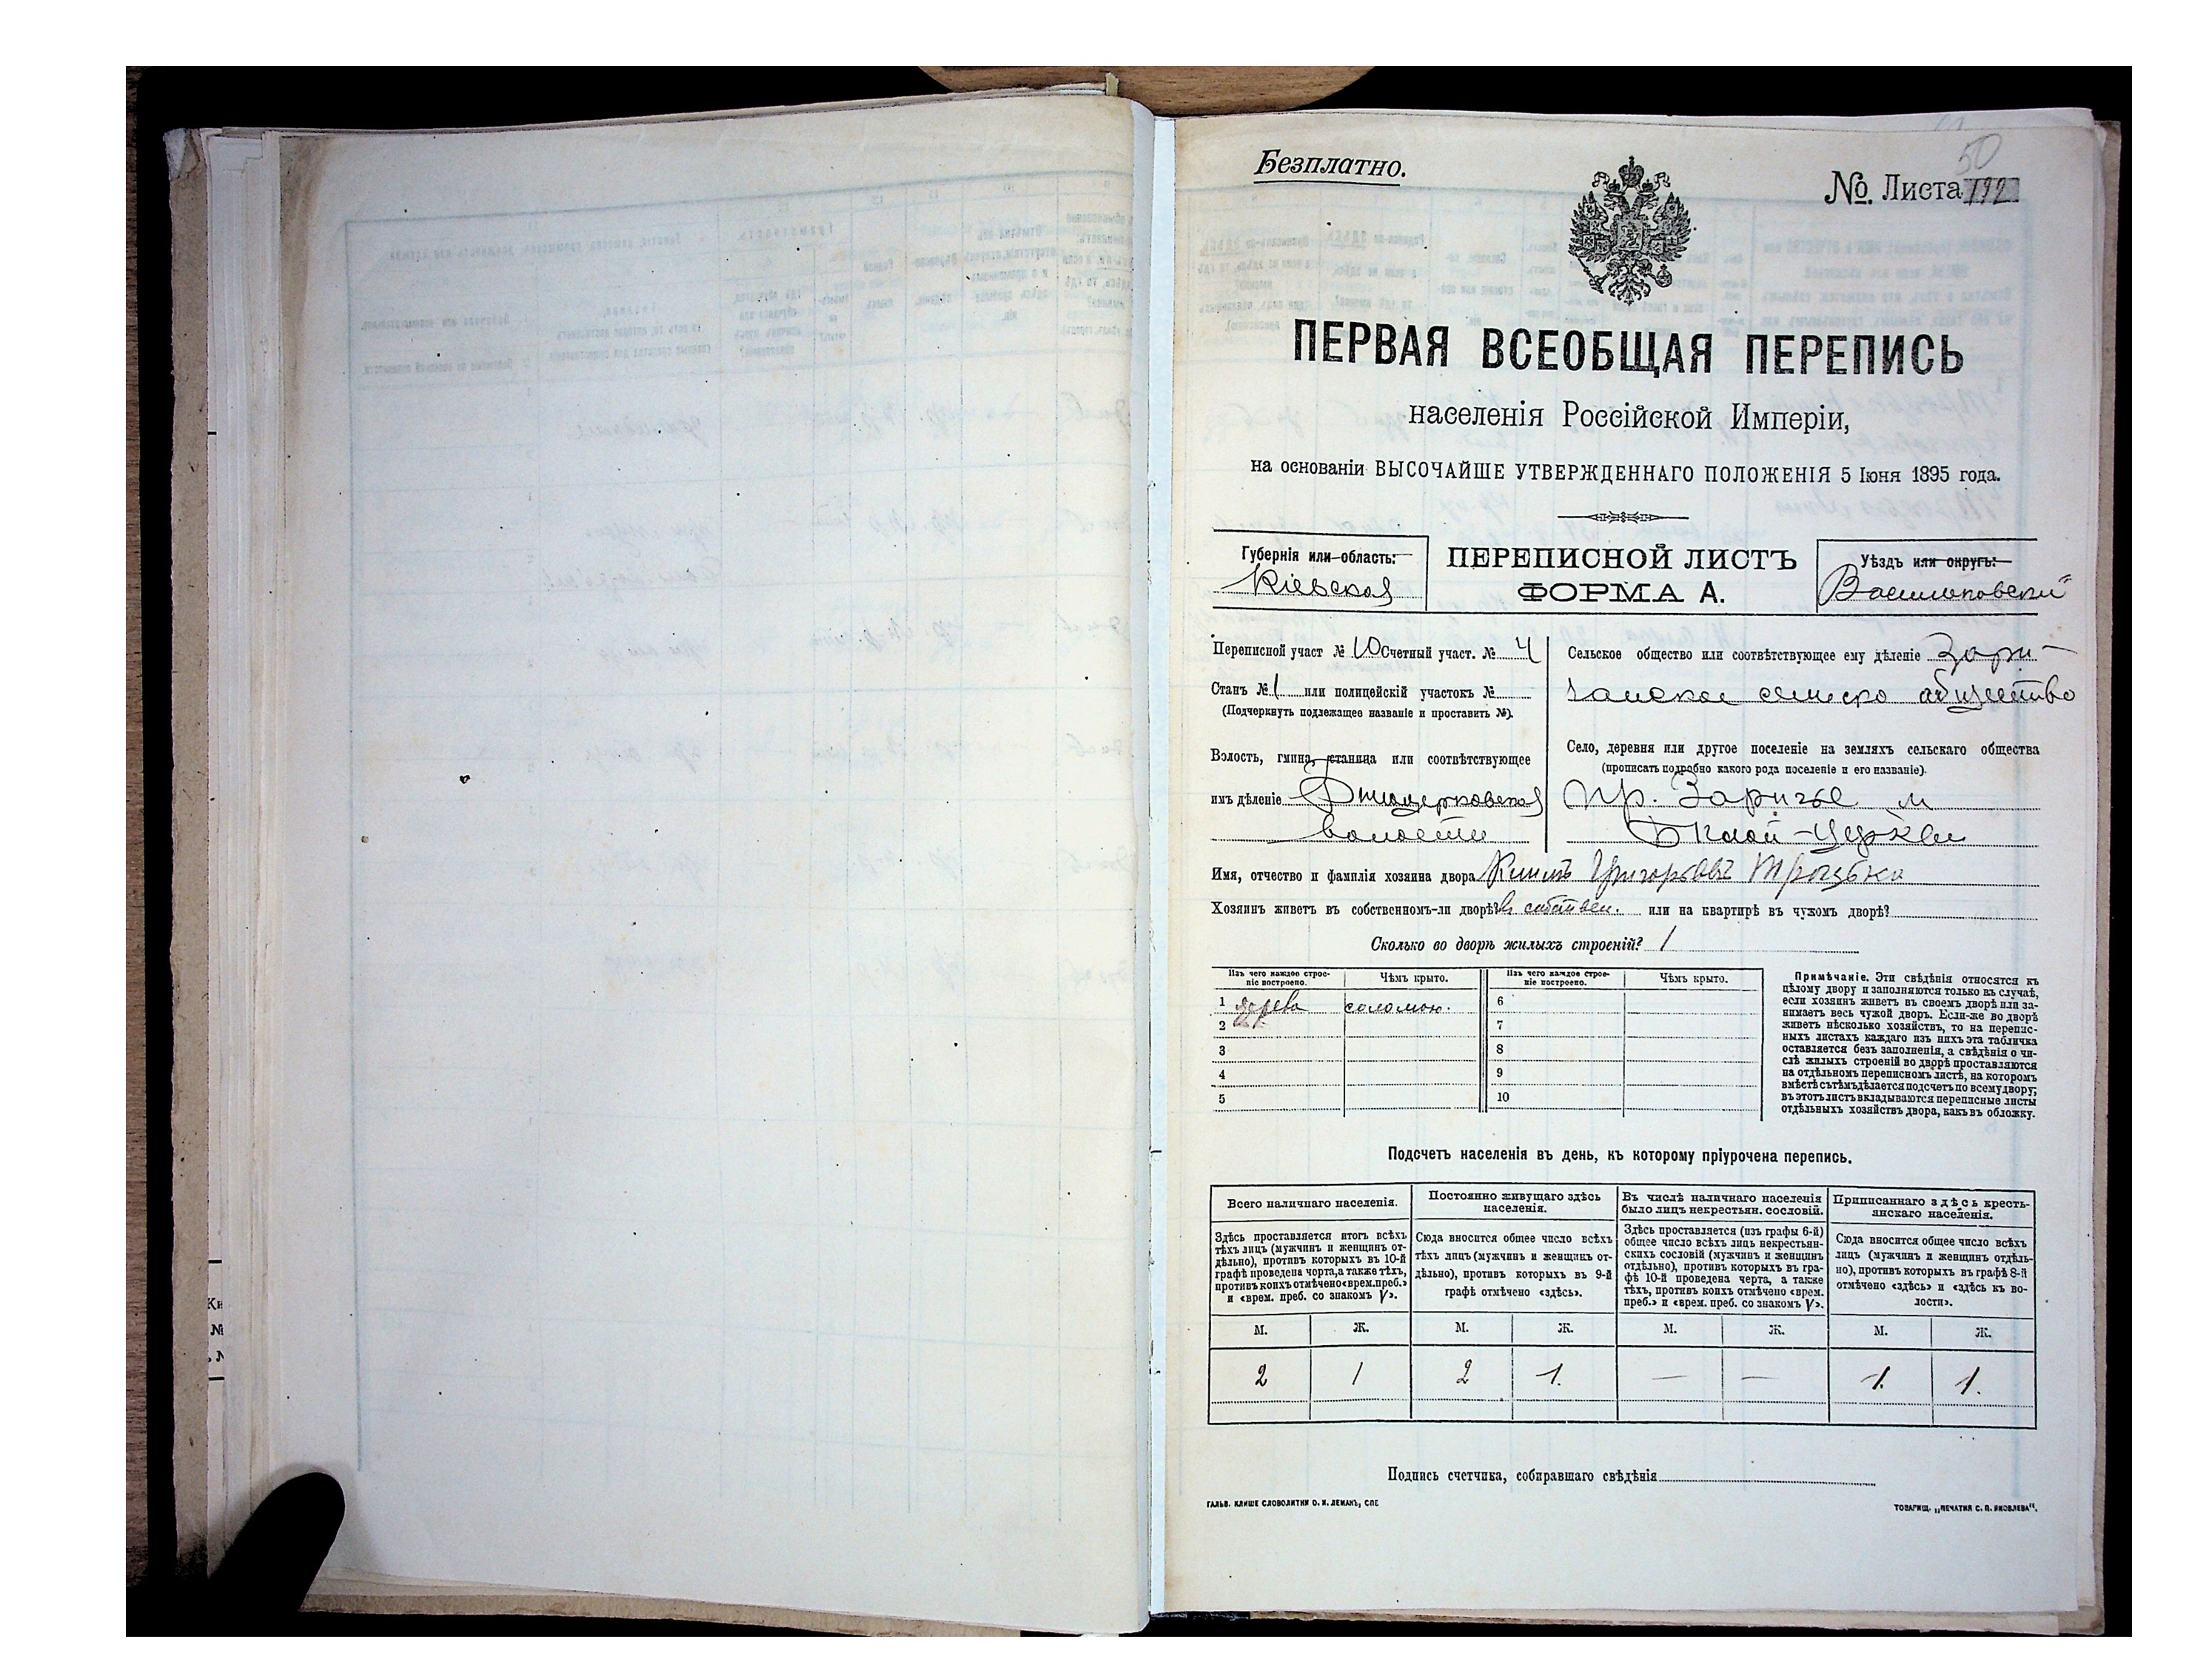 50
Безплатно.
№ Листа 192
ПЕРВАЯ ВСЕОБЩАЯ ПЕРЕПИСЬ
населенія Россійской Имперіи,
на основаніи ВЫСОЧАЙШЕ УТВЕРЖДЕННАГО ПОЛОЖЕНІЯ 5 Іюня 1895 года.
Губернія или область:
Кіевская
ПЕРЕПИСНОЙ ЛИСТЪ
ФОРМА А.
Уѣздъ или округъ:
Васильковскій
Переписной участ № 10 Счетный участ. № 4
Станъ № 1 или полицейскій участокъ №
(Подчеркнуть подлежащее названіе и проставить №).
Волость, гмина, станица или соотвѣтствующее
имъ дѣленіе
волости
Сельское общество или соотвѣтствующее ему дѣленіе Зари-
Село, деревня или другое поселеніе на земляхъ сельскаго общества
(прописать подробно какого рода поселеніе и его названіе).
пр. Заричье м
Имя, отчество и фамилія хозяина двора
Хозяинъ живетъ въ собственномъ-ли дворѣ? въ собствен. или на квартирѣ въ чужомъ дворѣ?
Сколько во дворѣ жилыхъ строеній? 1
Изъ чего каждое строе-
ніе построено.
Чѣмъ крыто.
Изъ чего каждое строе-
ніе построено.
Чѣмъ крыто.
1 дерева соломою. 6
2 7
3 8
4 9
5 10
Примѣчаніе. Эти свѣдѣнія относятся къ
цѣлому двору и заполняются только въ случаѣ,
если хозяинъ живетъ въ своемъ дворѣ или за-
нимаетъ весь чужой дворъ. Если-же во дворѣ
живетъ нѣсколько хозяйствъ, то на перепис-
ныхъ листахъ каждаго изъ нихъ эта табличка
оставляется безъ заполненія, а свѣдѣнія о чи-
слѣ жилыхъ строеній во дворѣ проставляются
на отдѣльномъ переписномъ листѣ, на которомъ
вмѣстѣ съ тѣмъ дѣлается подсчетъ по всему двору;
въ этотъ листъ вкладываются переписные листы
отдѣльныхъ хозяйствъ двора, какъ въ обложку.
Подсчетъ населенія въ день, къ которому пріурочена перепись.
Всего наличнаго населенія.
Здѣсь проставляется итогъ всѣхъ
тѣхъ лицъ (мужчинъ и женщинъ от-
дѣльно), противъ которыхъ въ 10-й
графѣ проведена черта, а также тѣхъ,
противъ коихъ отмѣчено «врем. преб.»
и «врем. преб. со знакомъ V».
Постоянно живущаго здѣсь
населенія.
Сюда вносится общее число всѣхъ
тѣхъ лицъ (мужчинъ и женщинъ от-
дѣльно), противъ которыхъ въ 9-й
графѣ отмѣчено «здѣсь».
Въ числѣ наличнаго населенія
было лицъ некрестьян. сословій.
Здѣсь проставляется (изъ графы 6-й)
общее число всѣхъ лицъ некрестьян-
скихъ сословій (мужчинъ и женщинъ
отдѣльно), противъ которыхъ въ гра-
фѣ 10-й проведена черта, а также
тѣхъ, противъ коихъ отмѣчено «врем.
преб.» и «врем. преб. со знакомъ V».
Приписаннаго здѣсь кресть-
янскаго населенія.
Сюда вносится общее число всѣхъ
лицъ (мужчинъ и женщинъ отдѣль-
но), противъ которыхъ въ графѣ 8-й
отмѣчено «здѣсь» и «здѣсь къ во-
лости».
М. Ж. М. Ж. М. Ж. М. Ж.
2 1 2 1. — — 1. 1.
Подпись счетчика, собиравшаго свѣдѣнія
ГАЛЬВ. КЛИШЕ СЛОВОЛИТНИ О. И. ЛЕМАНЪ, СПБ
ТОВАРИЩ. „ПЕЧАТНЯ С. П. ЯКОВЛЕВА".